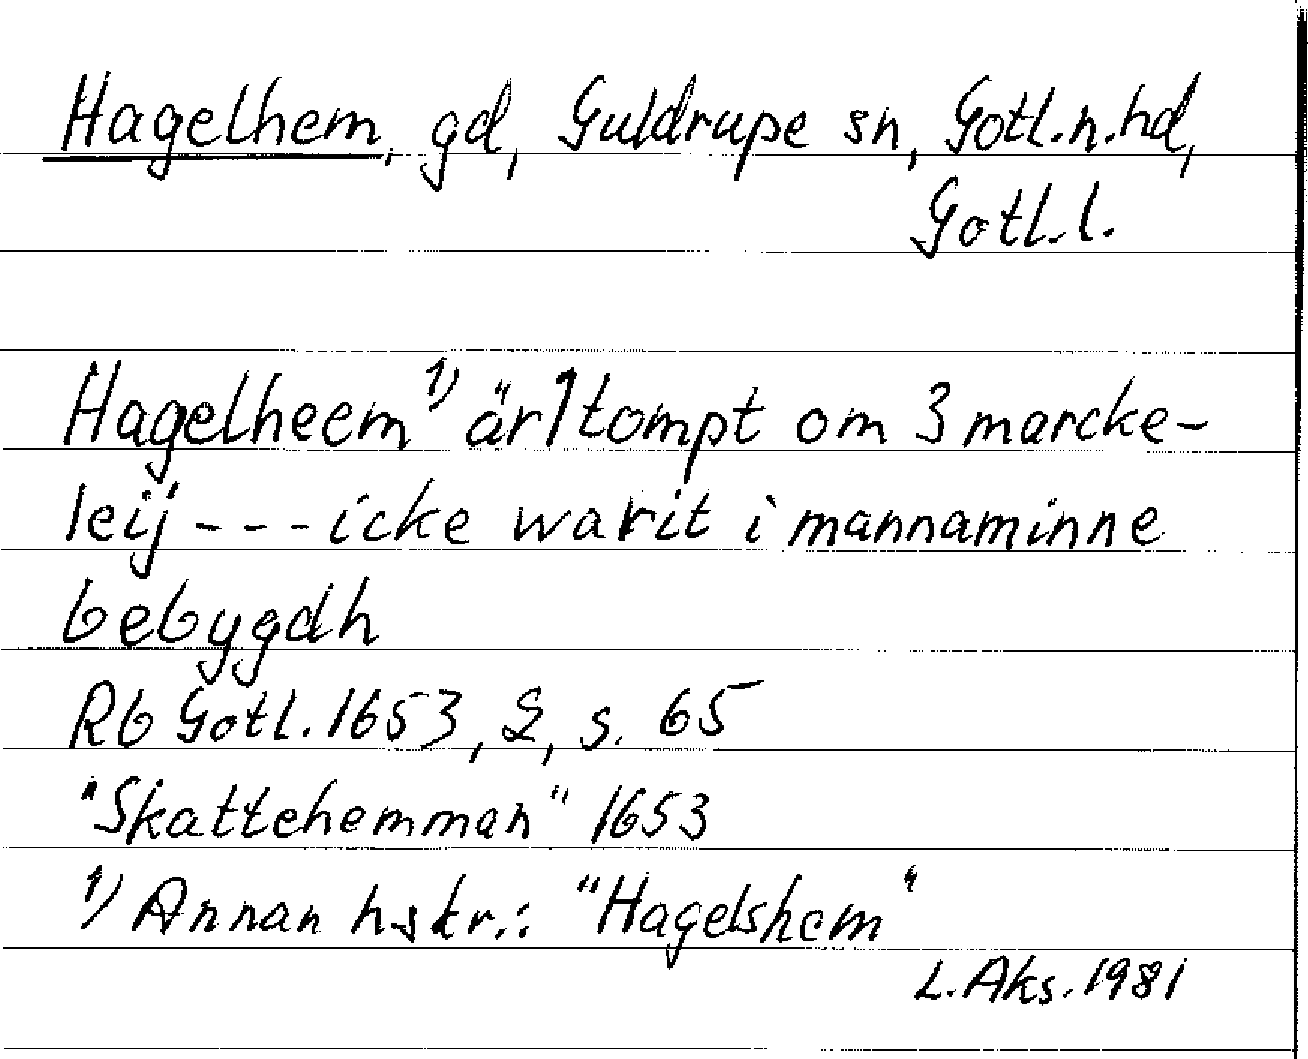 Hagelhem, gd, Guldrupe sn, Gotl.n.hd,
Gotl.l.
Hagelheem 1) är 1 tompt om 3 marcke-
leij --- icke warit i mannaminne
bebygdh
Rb Gotl. 1653, 2, s. 65
"Skattehemman" 1653
1) Annan hskr.: "Hagelshem"
L. Aks. 1981